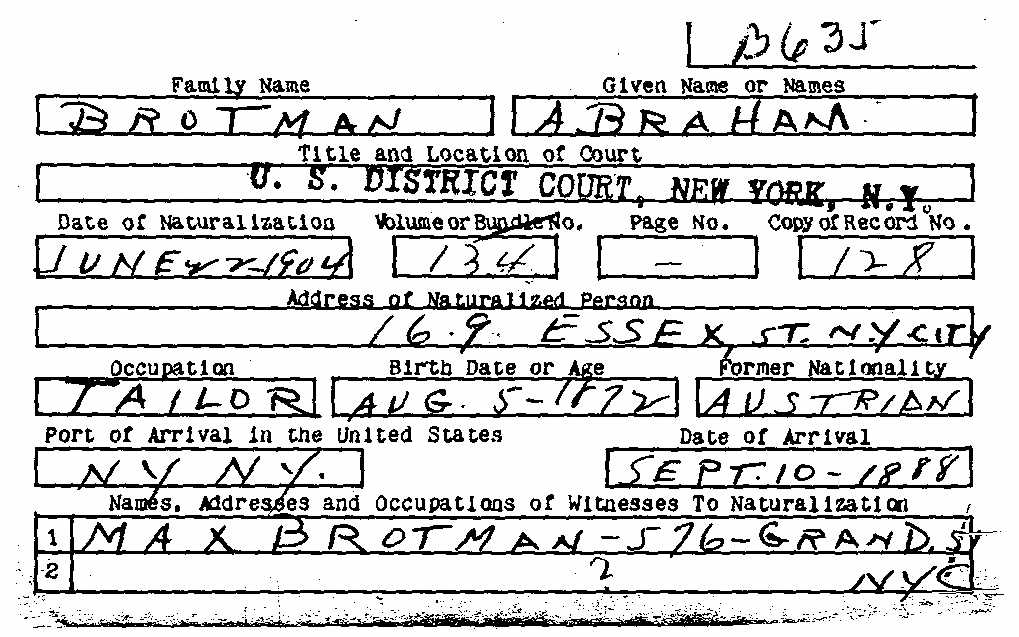 B635
Family Name Given Name or Names
BROTMAN ABRAHAM
Title and Location of Court
U. S. DISTRICT COURT, NEW YORK, N.Y.
Date of Naturalization Volume or Bundle No. Page No. Copy of Record No.
JUNE 22-1904 134 — 128
Address of Naturalized Person
16.9. ESSEX, ST. N.Y CITY
Occupation Birth Date or Age Former Nationality
TAILOR AUG. 5-1872 AUSTRIAN
Port of Arrival in the United States Date of Arrival
NY NY. SEPT.10-1888
Names, Addresses and Occupations of Witnesses To Naturalization
1 MAX BROTMAN-576-GRAND.ST
2 ? NYC